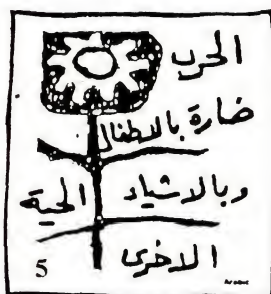 الحرب
ضارة بالاطفال
وبالاشياء الحية
الاخرى
5